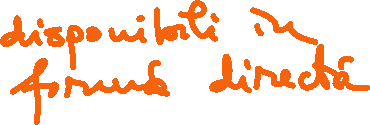 disponibili în
formă directă